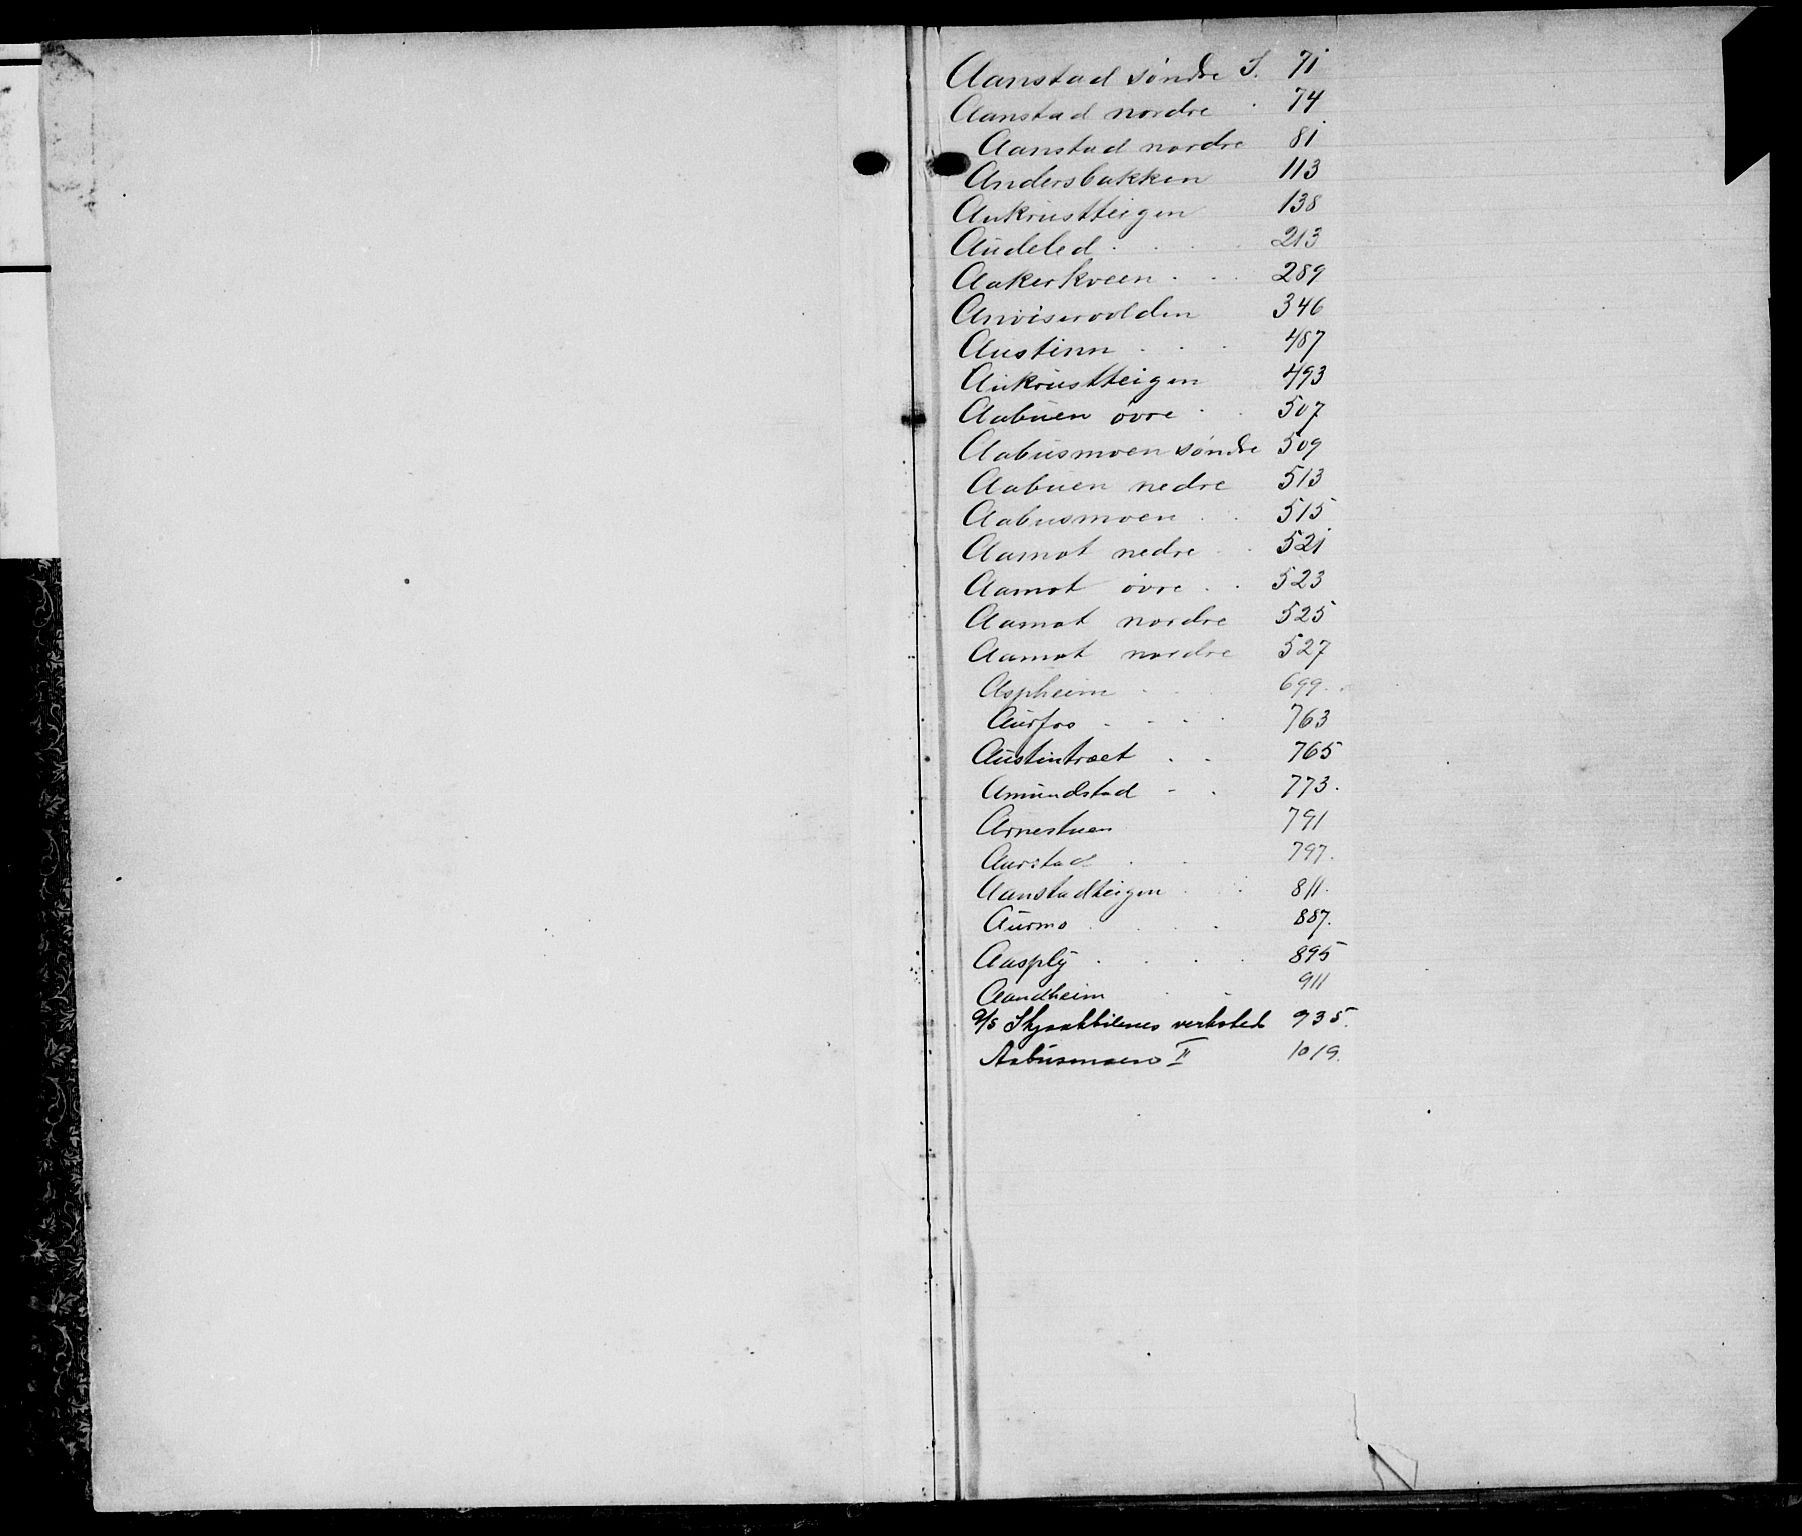 Aanstad søndre S. 71
Aanstad nordre 74
Aanstad nordre 81
Andersbakken 113
Aukrustteigen 138
Audeled 213
Aakerkveen 289
Anviservolden 346
Austinn 487
Aukrustteigen 493
Aabuen øvre 507
Aabusmoen søndre 509
Aabuen nedre 513
Aabusmoen 515
Aamot nedre 521
Aamot øvre 523
Aamot nordre 525
Aamot nordre 527
Aspheim 699
Aurfos 763
Austintræet 765
Amundstad 773.
Arnestuen 791
Aurstad 797.
Aanstadteigen 811.
Aurmo 887.
Aasply 895
Aandheim 911
A/S Skjaakbilenes verksted 935.
Aabusmoen II 1019.